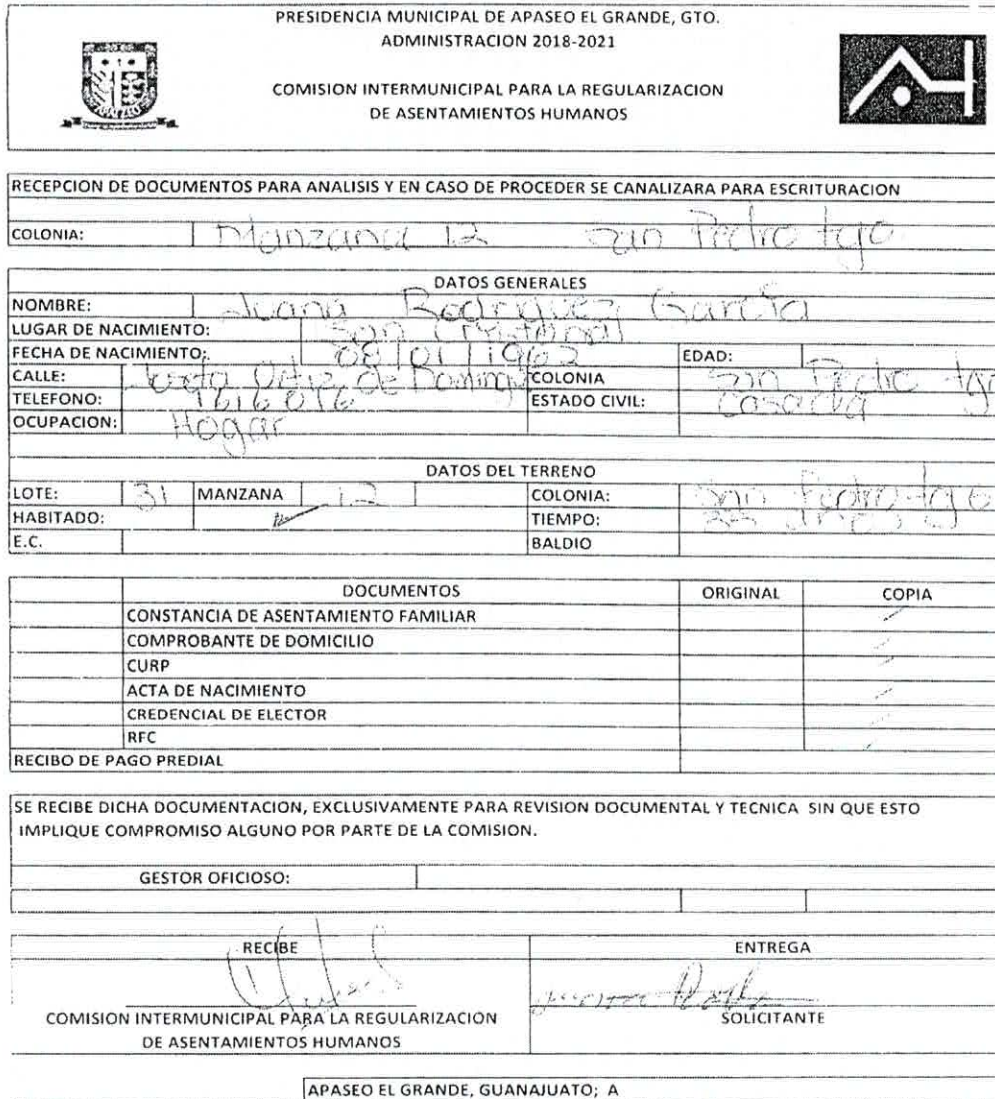 PRESIDENCIA MUNICIPAL DE APASEO EL GRANDE, GTO.
ADMINISTRACION 2018-2021
COMISION INTERMUNICIPAL PARA LA REGULARIZACION
DE ASENTAMIENTOS HUMANOS
RECEPCION DE DOCUMENTOS PARA ANALISIS Y EN CASO DE PROCEDER SE CANALIZARA PARA ESCRITURACION
COLONIA: Manzana 12 San Pedro tgo
DATOS GENERALES
NOMBRE: Juana Rodriguez García
LUGAR DE NACIMIENTO: San Cristobal
FECHA DE NACIMIENTO: 08/01/1962 EDAD:
CALLE: Josefa Ortiz de Domingu COLONIA San Pedro tgo
TELEFONO: 1616016 ESTADO CIVIL: casada
OCUPACION: Hogar
DATOS DEL TERRENO
LOTE: 31 MANZANA 12 COLONIA: San Pedro tgo
HABITADO: TIEMPO: años
E.C. BALDIO
DOCUMENTOS ORIGINAL COPIA
CONSTANCIA DE ASENTAMIENTO FAMILIAR
COMPROBANTE DE DOMICILIO
CURP
ACTA DE NACIMIENTO
CREDENCIAL DE ELECTOR
RFC
RECIBO DE PAGO PREDIAL
SE RECIBE DICHA DOCUMENTACION, EXCLUSIVAMENTE PARA REVISION DOCUMENTAL Y TECNICA SIN QUE ESTO
IMPLIQUE COMPROMISO ALGUNO POR PARTE DE LA COMISION.
GESTOR OFICIOSO:
RECIBE ENTREGA
COMISION INTERMUNICIPAL PARA LA REGULARIZACION SOLICITANTE
DE ASENTAMIENTOS HUMANOS
APASEO EL GRANDE, GUANAJUATO; A